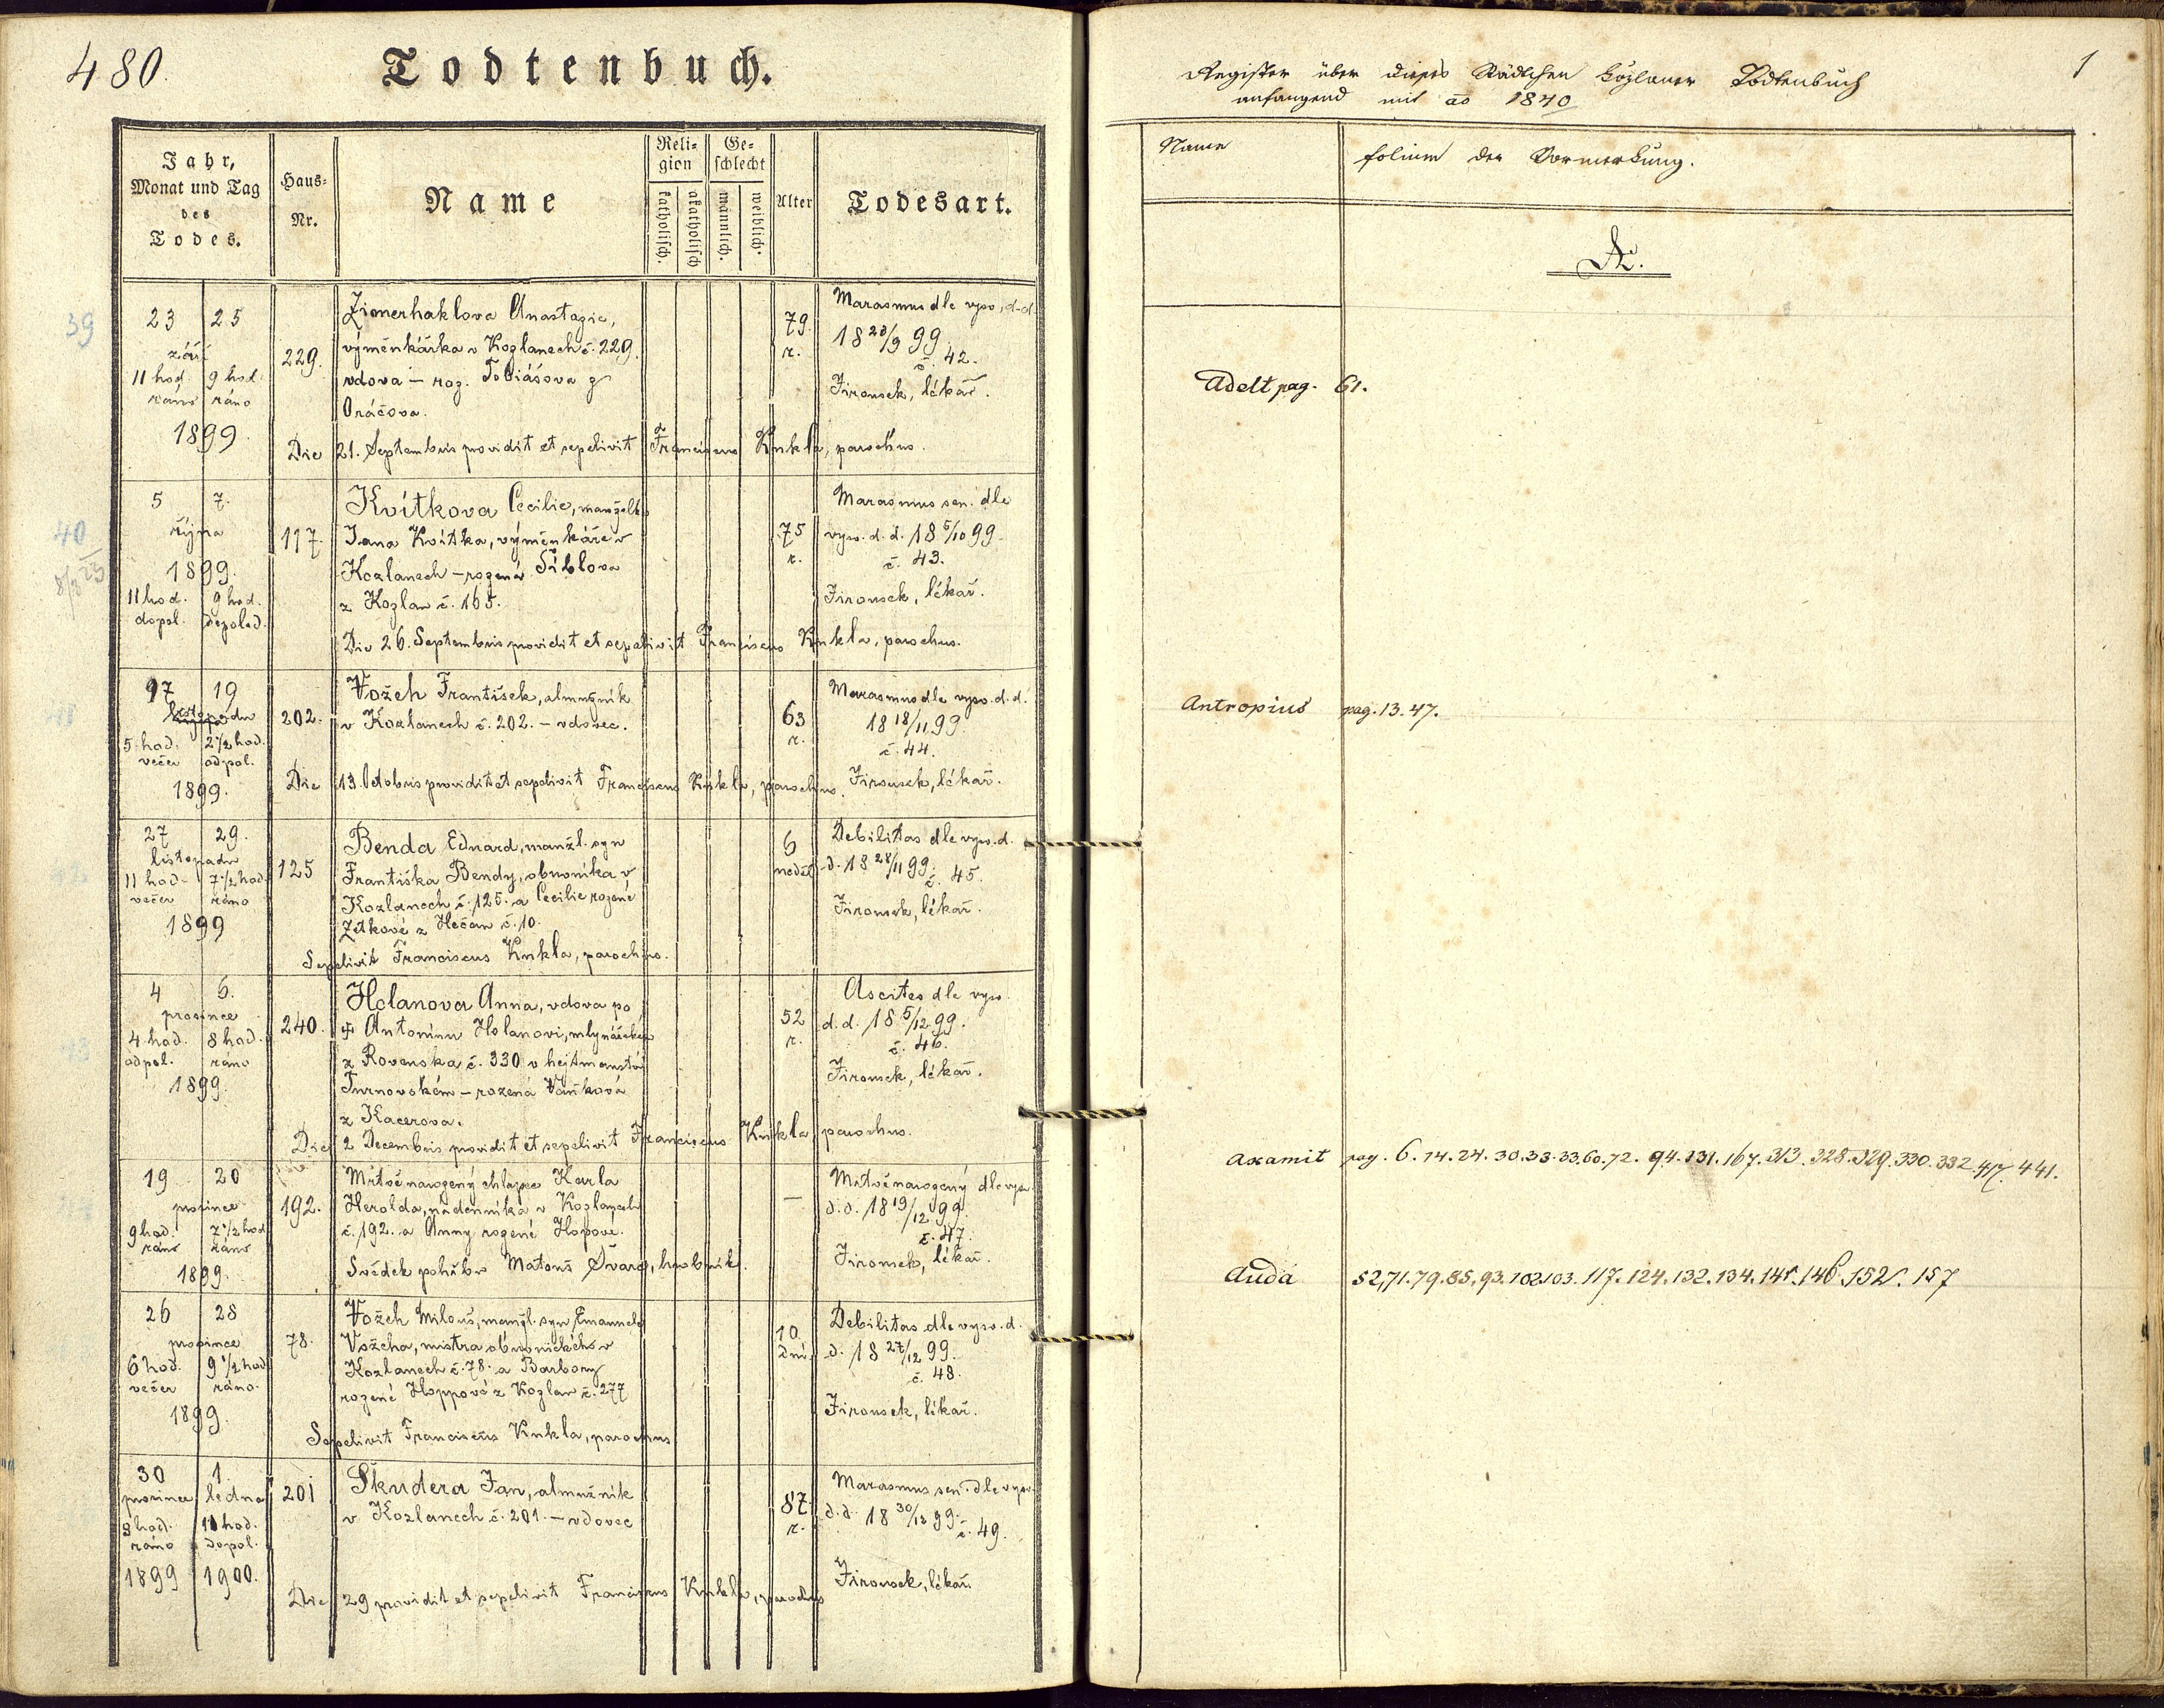 480.
Todtenbuch.
Jahr,
Monat und Tag
des
Todes.
Haus-
Nr.
Name
Reli-
gion
katholisch.
akatholisch
Ge-
schlecht
männlich.
weiblich.
Alter
Todesart.
39
23 25
září
11 hod. 9 hod.
ráno ráno
1899.
229.
Zimerhaklova Anastazie,
výměnkářka v Kozlanech č. 229.
vdova – roz. Tobiášova z
Oráčova.
79.
r.
Marasmus dle vysv. d. d.
18 23/9 99.
č. 42.
Jirousek, lékař.
Die 21. Septembris providit et sepelivit Franciscus Kukla, parochus.
40
5 7.
října
1899.
11 hod. 9 hod.
dopol. dopoled.
117.
Kvítkova Cecilie, manželka
Jana Kvítka, výměnkáře v
Kozlanech – rozená Šiblova
z Kozlan č. 165.
75
r.
Marasmus sen. dle
vysv. d. d. 18 5/10 99.
č. 43.
Jirousek, lékař.
Die 26. Septembris providit et sepelivit Franciscus Kukla, parochus.
17 19
listopadu
5 hod. 2 1/2 hod.
večer odpol.
1899.
202.
Vožeh František, almužník
v Kozlanech č. 202. – vdovec.
63
r.
Marasmus dle vysv. d. d.
18 18/11 99.
č. 44.
Jirousek, lékař.
Die 13. Octobris providit et sepelivit Franciscus Kukla, parochus.
27 29.
listopadu
11 hod. 7 1/2 hod.
večer ráno
1899
125
Benda Eduard, manžl. syn
Františka Bendy, obuvníka v
Kozlanech č. 125. a Cecilie rozené
Zítkové z Hečan č. 10.
6
neděl
Debilitas dle vysv. d.
d. 18 28/11 99.
č. 45.
Jirousek, lékař.
Sepelivit Franciscus Kukla, parochus.
4 6.
prosince
4 hod. 8 hod.
odpol. ráno
1899.
240.
Holanova Anna, vdova po
Antonínu Holanovi,
z Rovenska č. 330 v hejtmanství
Turnovském – rozená Vaňková
z Kacerova.
52
r.
Ascites dle vysv.
d. d. 18 5/12 99.
č. 46.
Jirousek, lékař.
Die 2 Decembris providit et sepelivit Franciscus Kukla, parochus.
19 20
prosince
9 hod. 7 1/2 hod
ráno ráno
1899.
192.
Mrtvě narozený chlapec Karla
Herolda, nádenníka v Kozlanech
č. 192. a Anny rozené Hopové.
–
Mrtvě narozený dle vysv.
d. d. 18 19/12 99.
č. 47.
Jirousek, lékař.
Svědek pohřbu Matouš Švarc, hrobník.
26 28
prosince
6 hod. 9 1/2 hod
večer ráno.
1899.
78.
Vožeh Milouš, manžl. syn Emanuela
Vožeha, mistra obuvnického v
Kozlanech č. 78. a Barbory
rozené Hoppové z Kozlan č. 277
10.
dní.
Debilitas dle vysv. d.
d. 18 27/12 99.
č. 48.
Jirousek, lékař.
Sepelivit Franciscus Kukla, parochus
30 1.
prosince ledna
8 hod. 11 hod.
ráno dopol.
1899 1900.
201
Škudera Jan, almužník
v Kozlanech č. 201. – vdovec
87.
r.
Marasmus sen. dle vysv.
d. d. 18 30/12 99.
č. 49.
Jirousek, lékař.
Die 29 providit et sepelivit Franciscus Kukla, parochus
1
Register über dieses Städtchen Kožlaner Todtenbuch
anfangend mit ao 1840
Name
folium der Vormerkung.
A.
Adelt pag. 61.
Antropius pag. 13. 47.
Axamit pag. 6. 14. 24. 30. 33. 33. 60. 72. 94. 131. 167. 313. 328. 329. 330. 332. 417. 441.
Auda 52, 71. 79. 85, 93. 102. 103. 117. 124. 132. 134. 141. 146. 152. 157